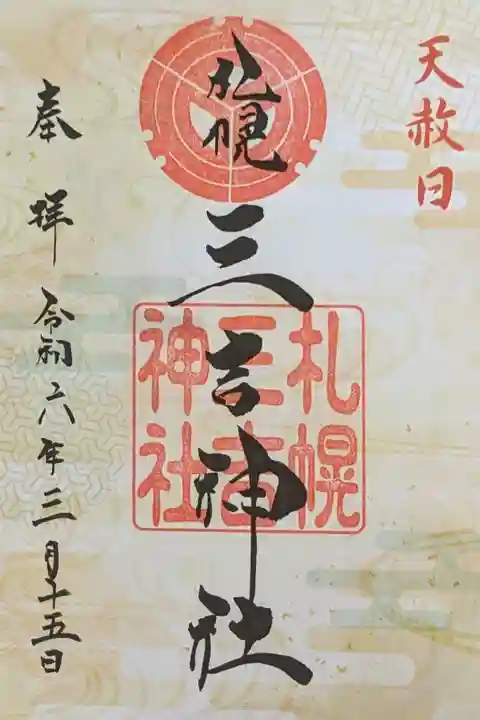 天赦日
札幌
三吉神社
札幌
三吉
神社
奉拝 令和六年三月十五日